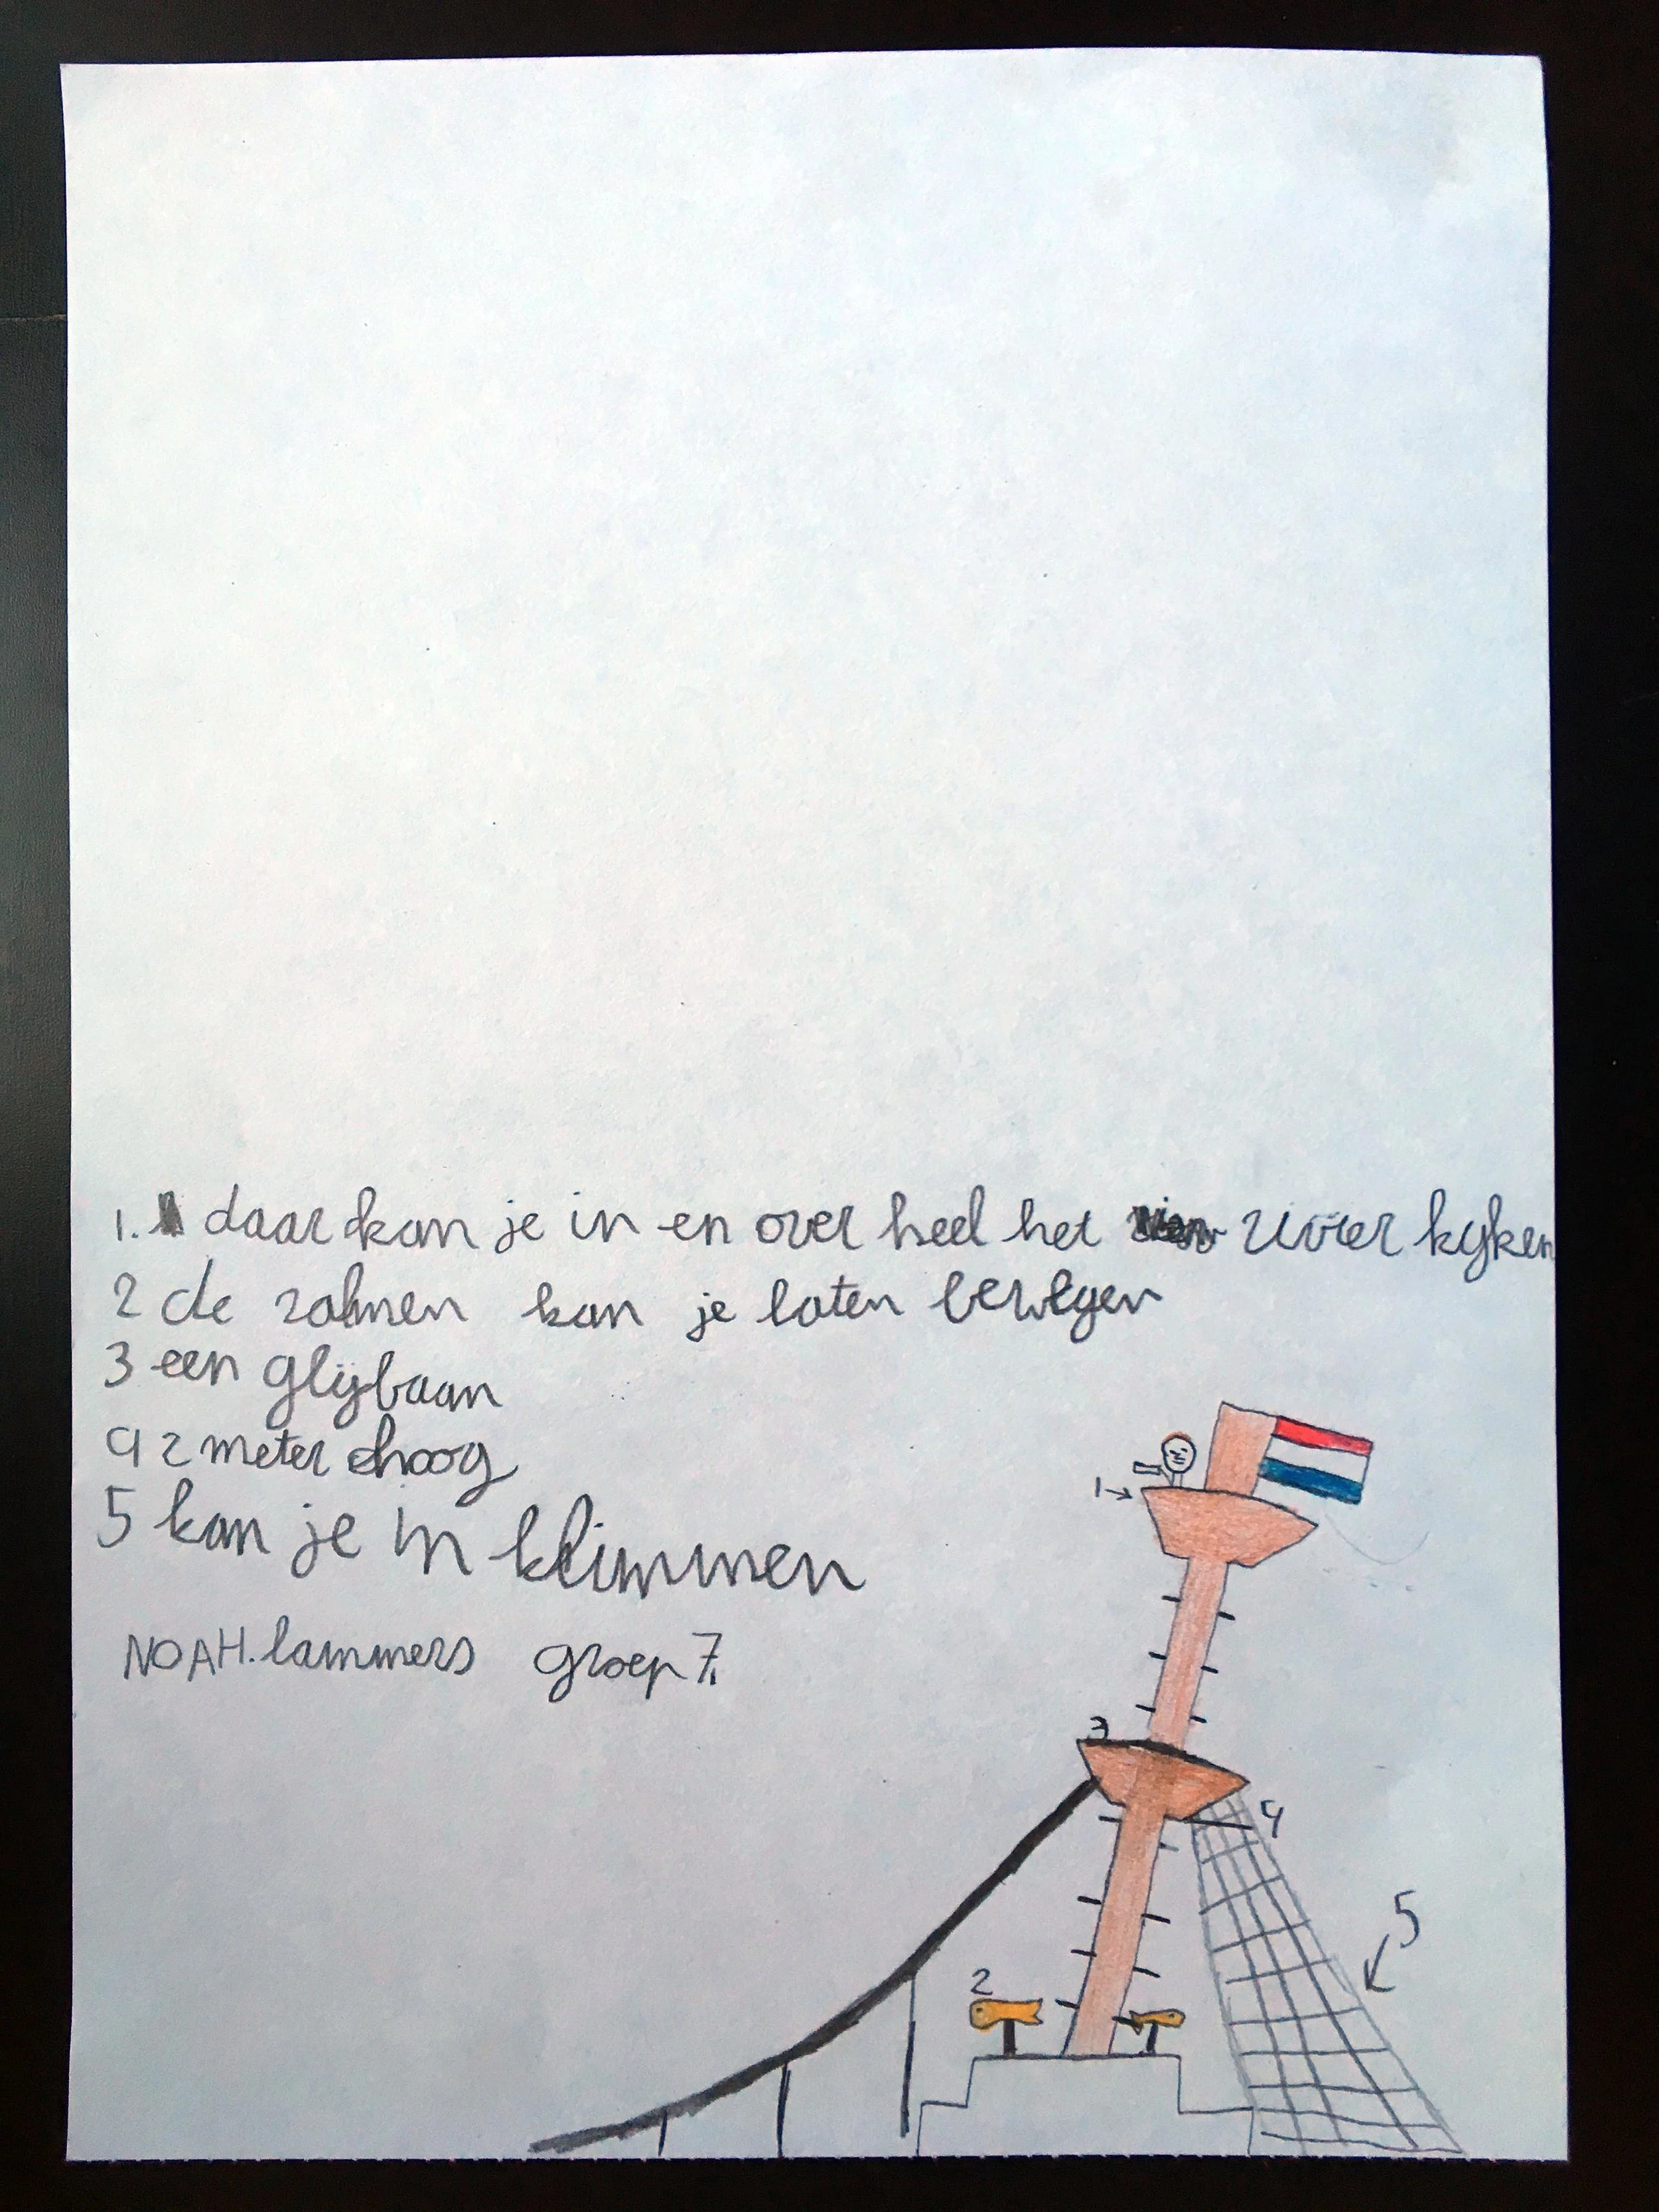 1. daar kan je in en over heel het rivier kijken
2 de zalmen kan je laten bewegen
3 een glijbaan
4 2 meter hoog
5 kan je in klimmen
NOAH. lammers groep 7.
1
3
4
5
2